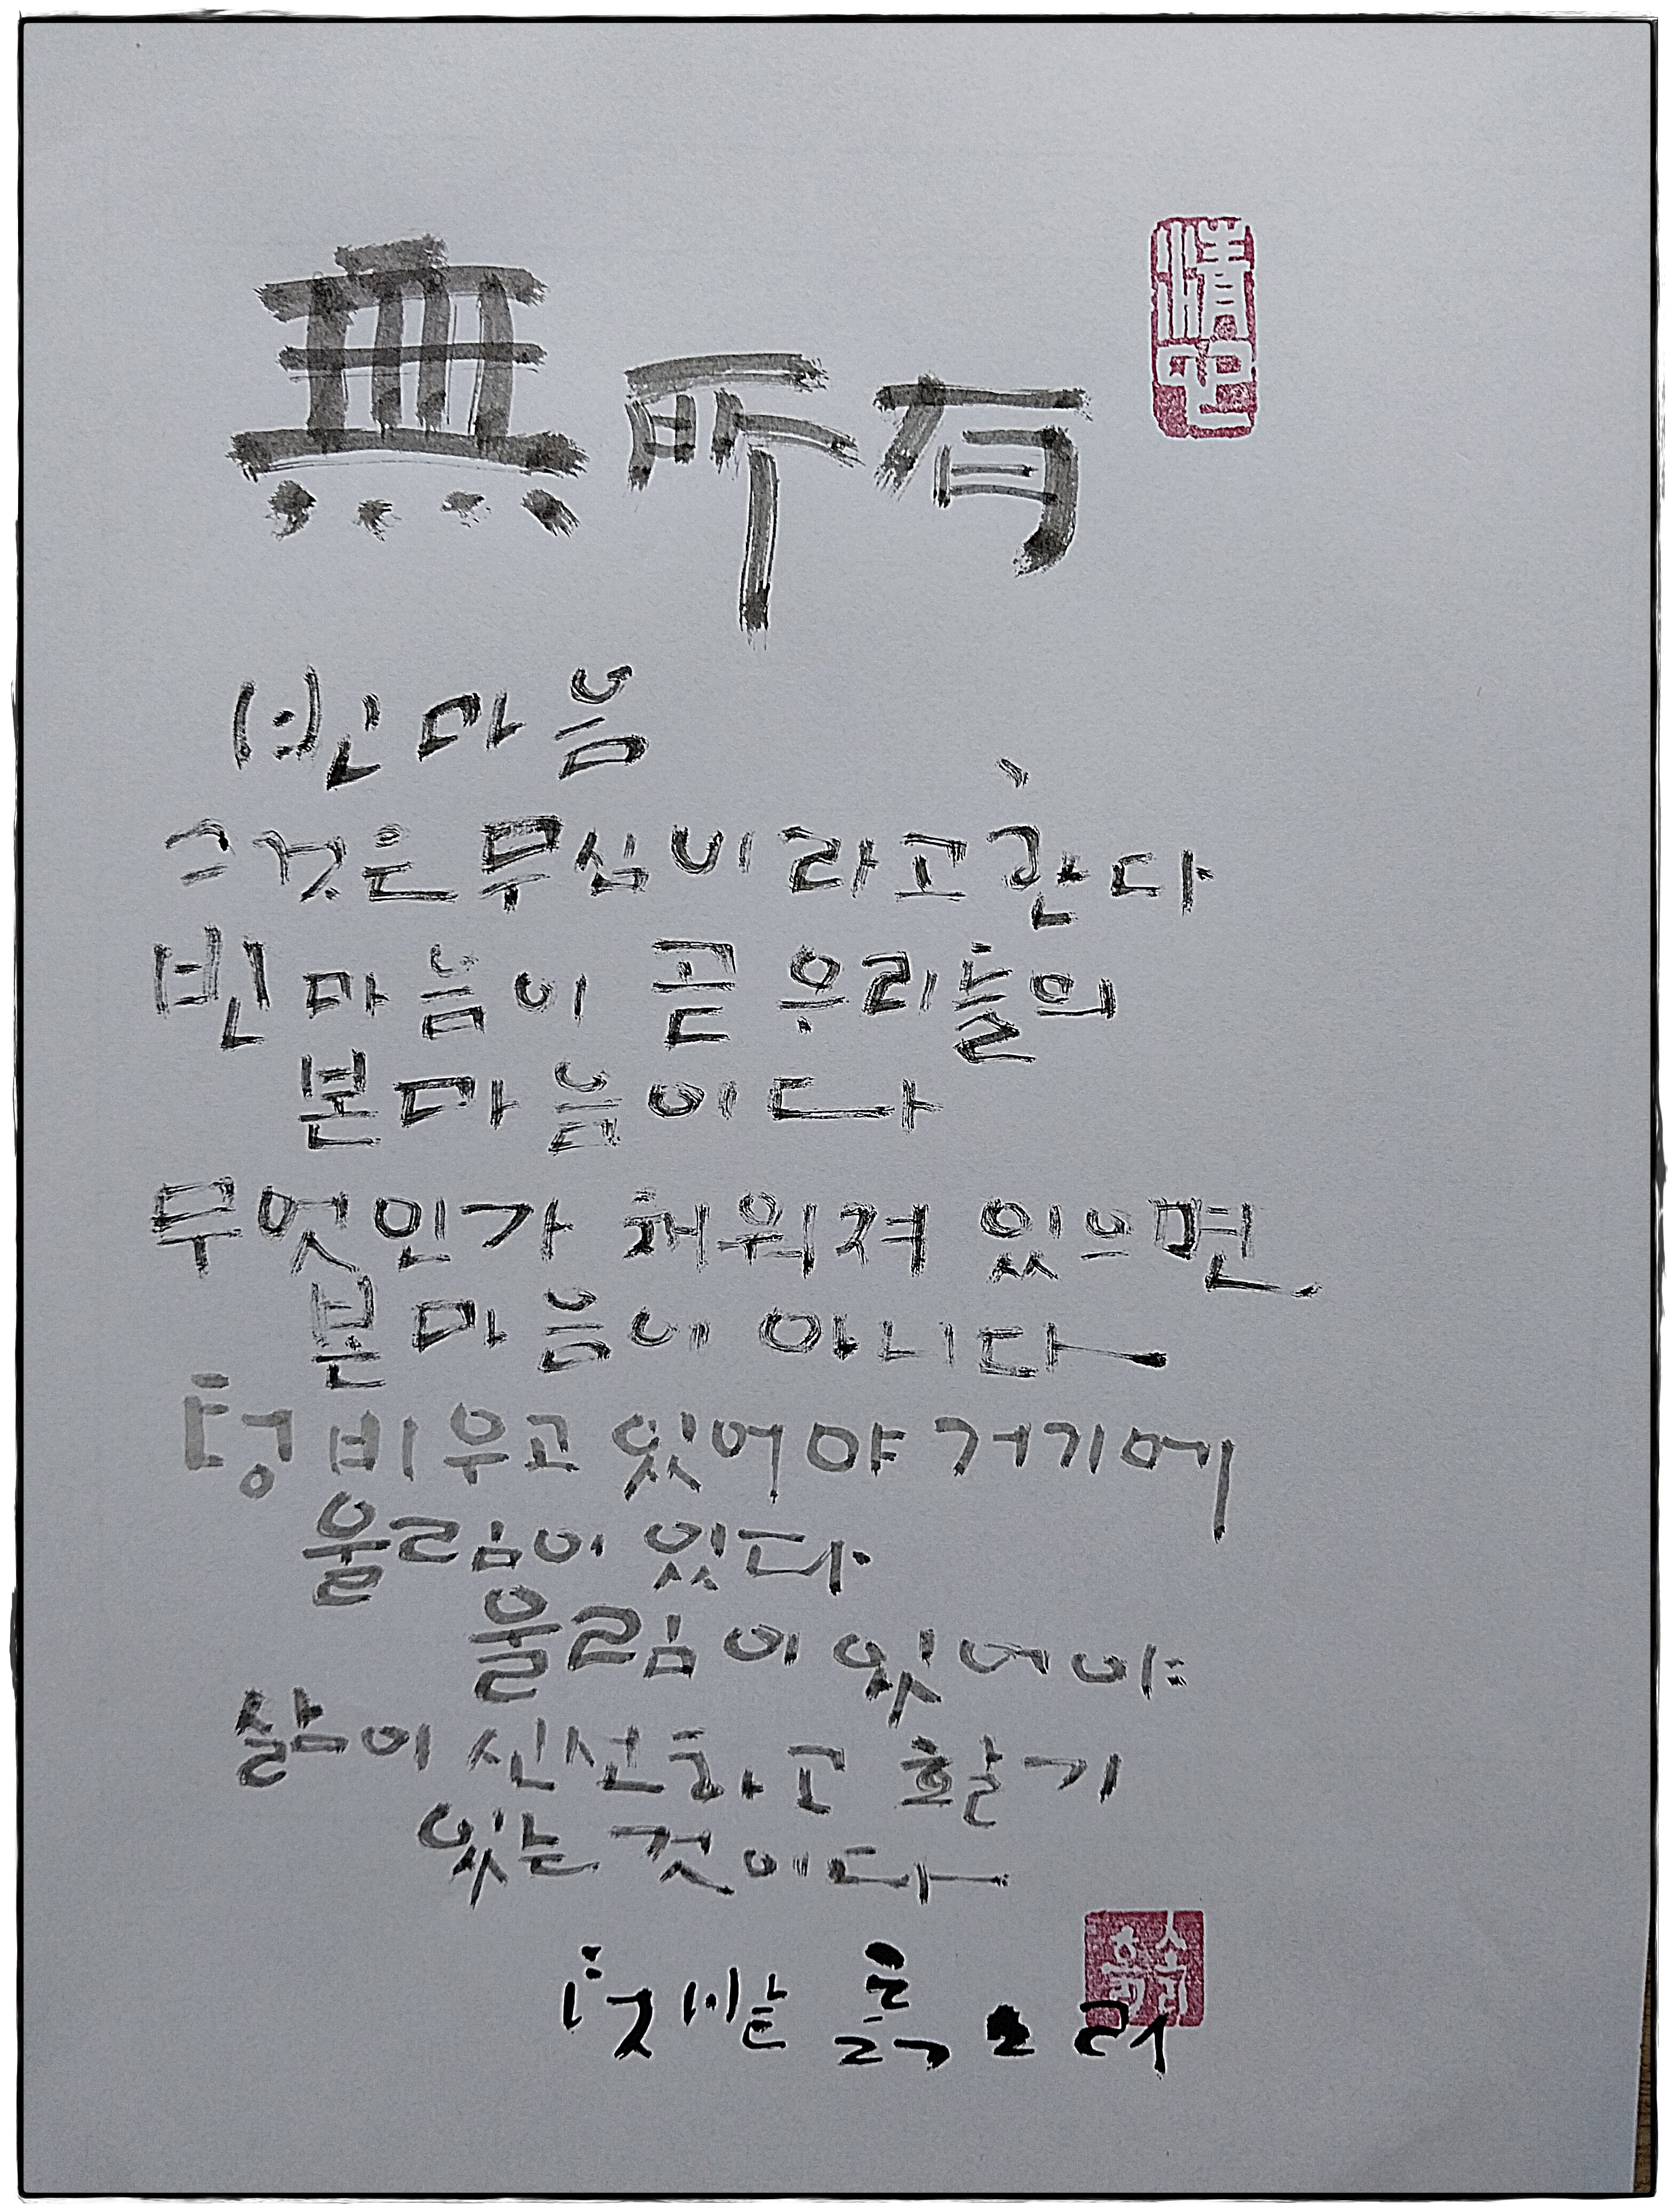 無所有
빈마음
그것은 무심이라고 한다
빈마음이 곧 우리들의
본마음이다
무엇인가 채워져 있으면
본마음이 아니다
텅 비우고 있어야 거기에
울림이 있다
울림이 있어야
삶이 신선하고 활기
있는 것이다
텃밭